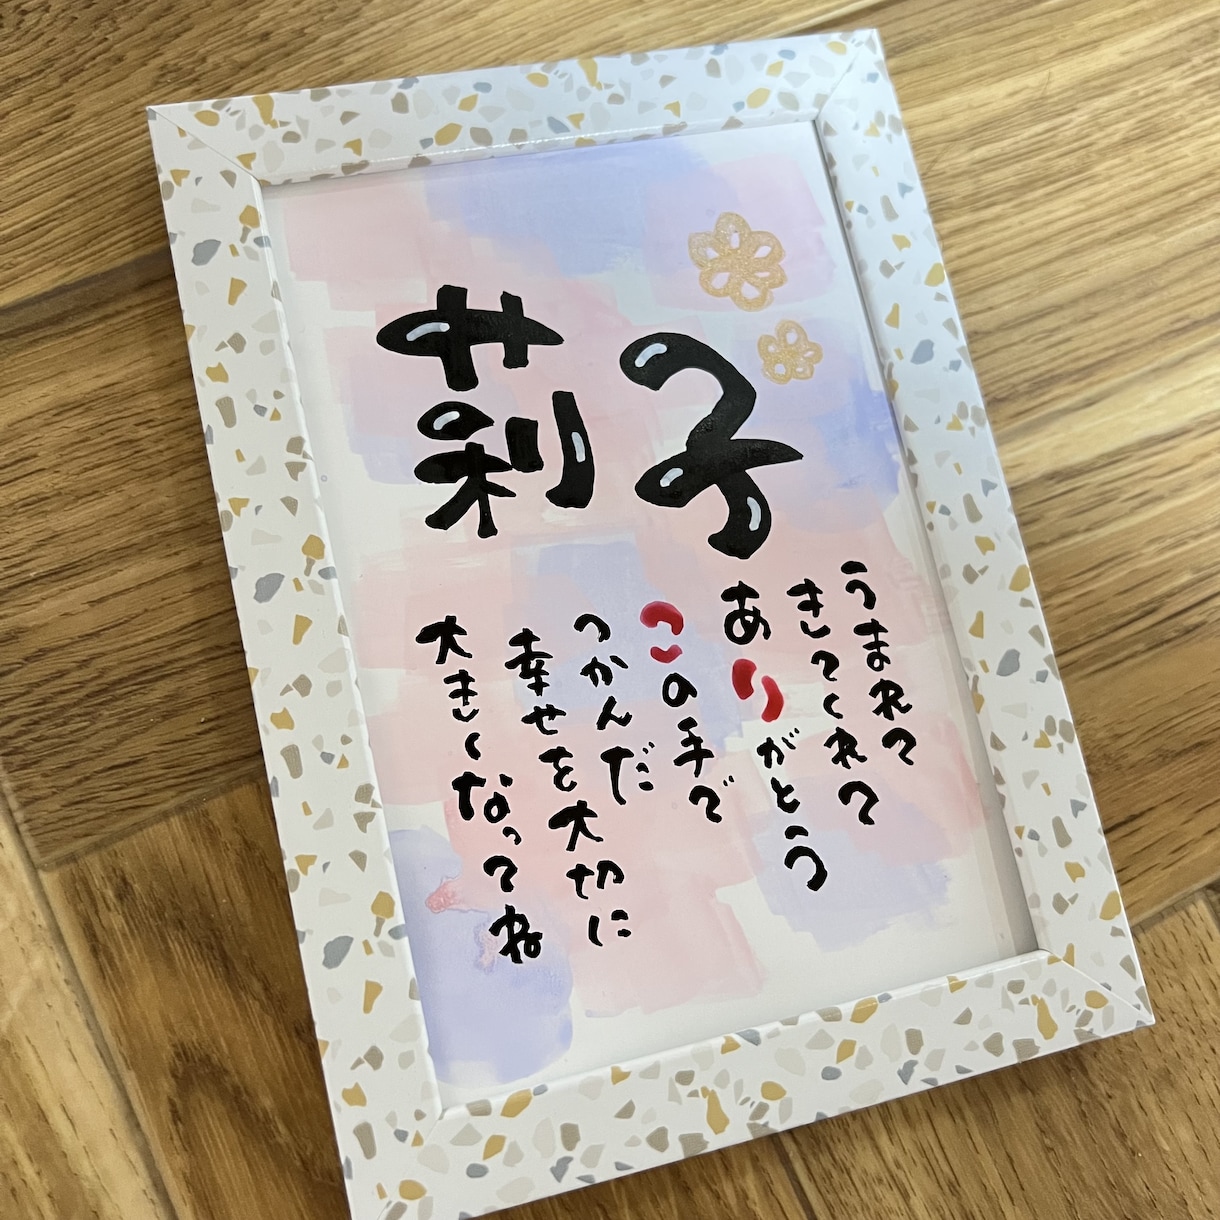 莉子
うまれて
きてくれて
ありがとう
この手で
つかんだ
幸せを大切に
大きくなってね